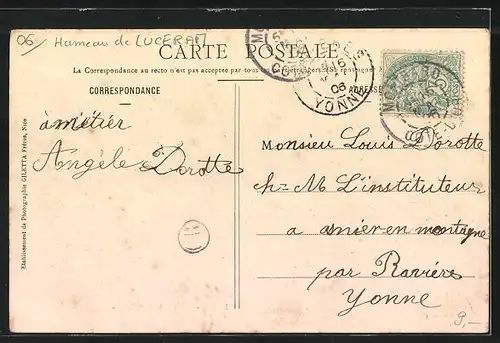 06 Hameau de LUCERAM
CARTE POSTALE
La Correspondance au recto n'est pas acceptée par tous les
CORRESPONDANCE
ADRESSE
YONNE
06
à métier
Angèle Dorotte
Monsieur Louis Dorotte
ch= M L'instituteur
a anier-en montagne
par Ravière
Yonne
Etablissement de Photographie GILETTA Frères, Nice
9,-